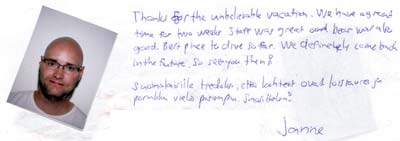 Thanks for the unbelievable vacation. We have a great
time for two weeks. Staff was great and bear was also
good. Best place to dive so far. We definetely come back
in the future. So see you then!
Suomalaisille tiedoksi, että kohteet ovat loistavia ja
porukka vielä parempaa.
Janne